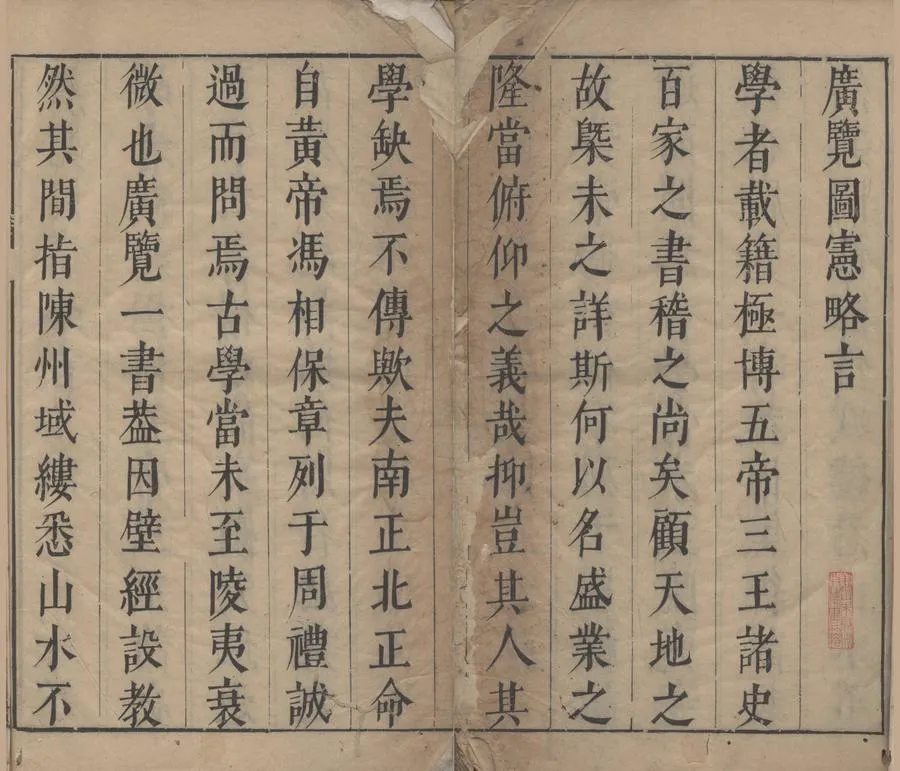 廣覽圖憲略言
學者載籍極博五帝三王諸史
百家之書稽之尚矣顧天地之
故槩未之詳斯何以名盛業之
隆當俯仰之義哉抑豈其人其
學缺焉不傳歟夫南正北正命
自黃帝馮相保章列于周禮誠
過而問焉古學當未至陵夷衰
微也廣覽一書葢因壁經設教
然其間指陳州域縷悉山水不